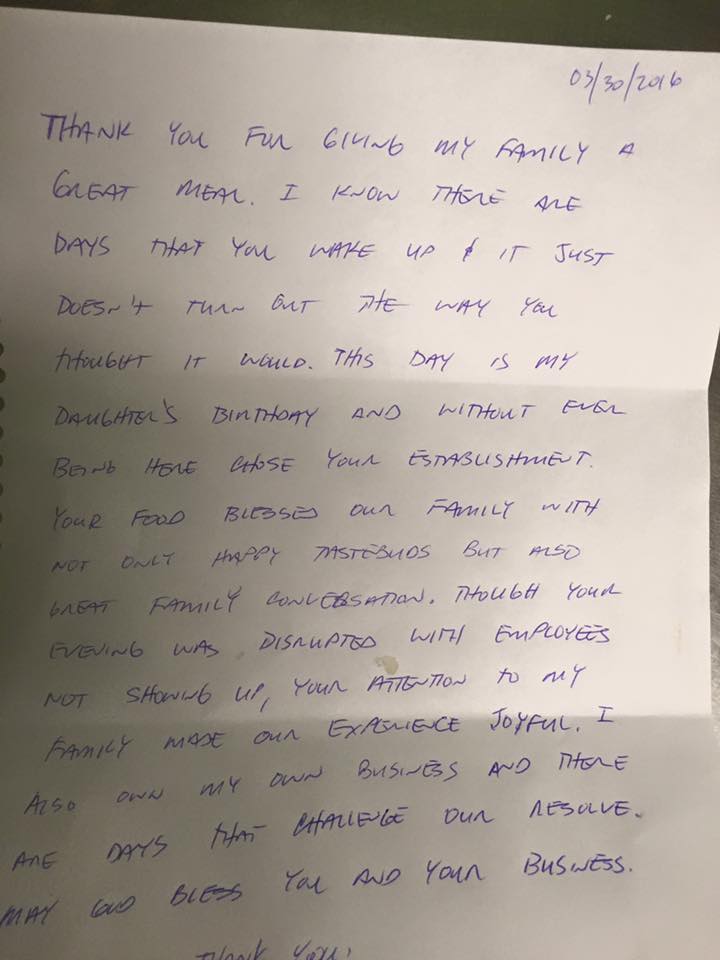 03/30/2016
THANK YOU FOR GIVING MY FAMILY A
GREAT MEAL. I KNOW THERE ARE
DAYS THAT YOU WAKE UP & IT JUST
DOESN'T TURN OUT THE WAY YOU
THOUGHT IT WOULD. THIS DAY IS MY
DAUGHTER'S BIRTHDAY AND WITHOUT EVER
BEING HERE CHOSE YOUR ESTABLISHMENT.
YOUR FOOD BLESSED OUR FAMILY WITH
NOT ONLY HAPPY TASTEBUDS BUT ALSO
GREAT FAMILY CONVERSATION. THOUGH YOUR
EVENING WAS DISRUPTED WITH EMPLOYEES
NOT SHOWING UP, YOUR ATTENTION TO MY
FAMILY MADE OUR EXPERIENCE JOYFUL. I
ALSO OWN MY OWN BUSINESS AND THERE
ARE DAYS THAT CHALLENGE OUR RESOLVE.
MAY GOD BLESS YOU AND YOUR BUSINESS.
THANK YOU,